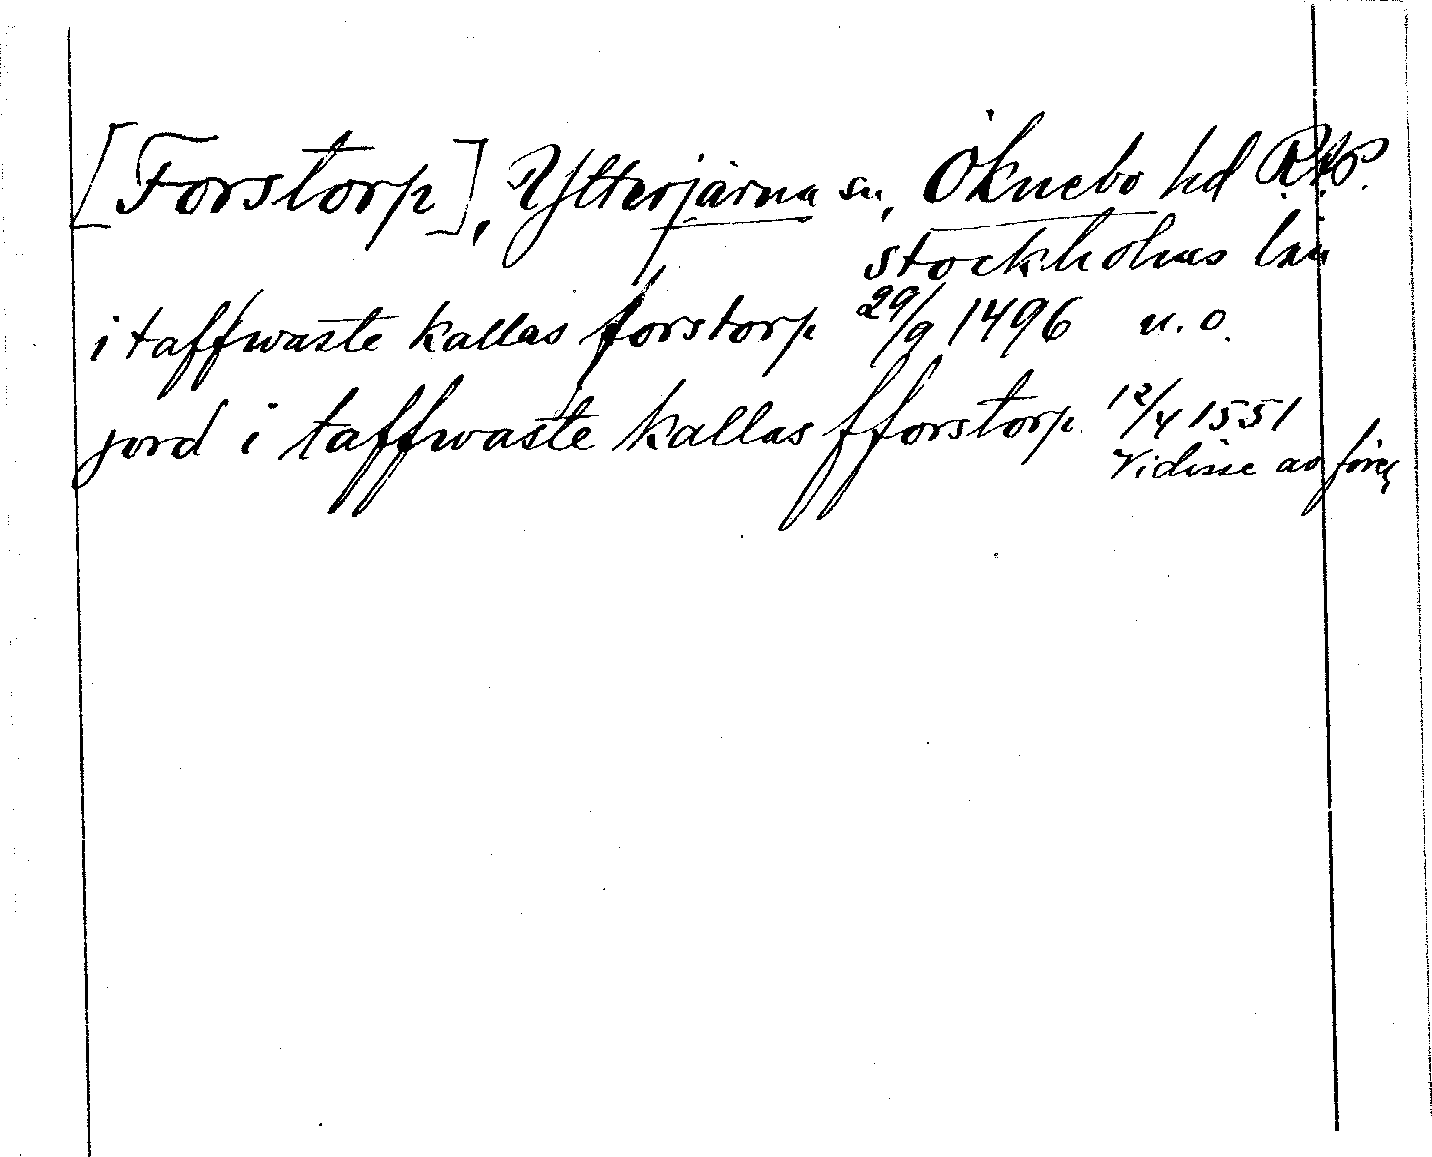 [Forstorp], Ytterjärna sn, Öknebo hd R.A.P.
Stockholms län
i taffwaste kallas forstorp 29/9 1496 u. o.
jord i taffwaste kallas fforstorp 12/4 1551
Vidisse av föreg